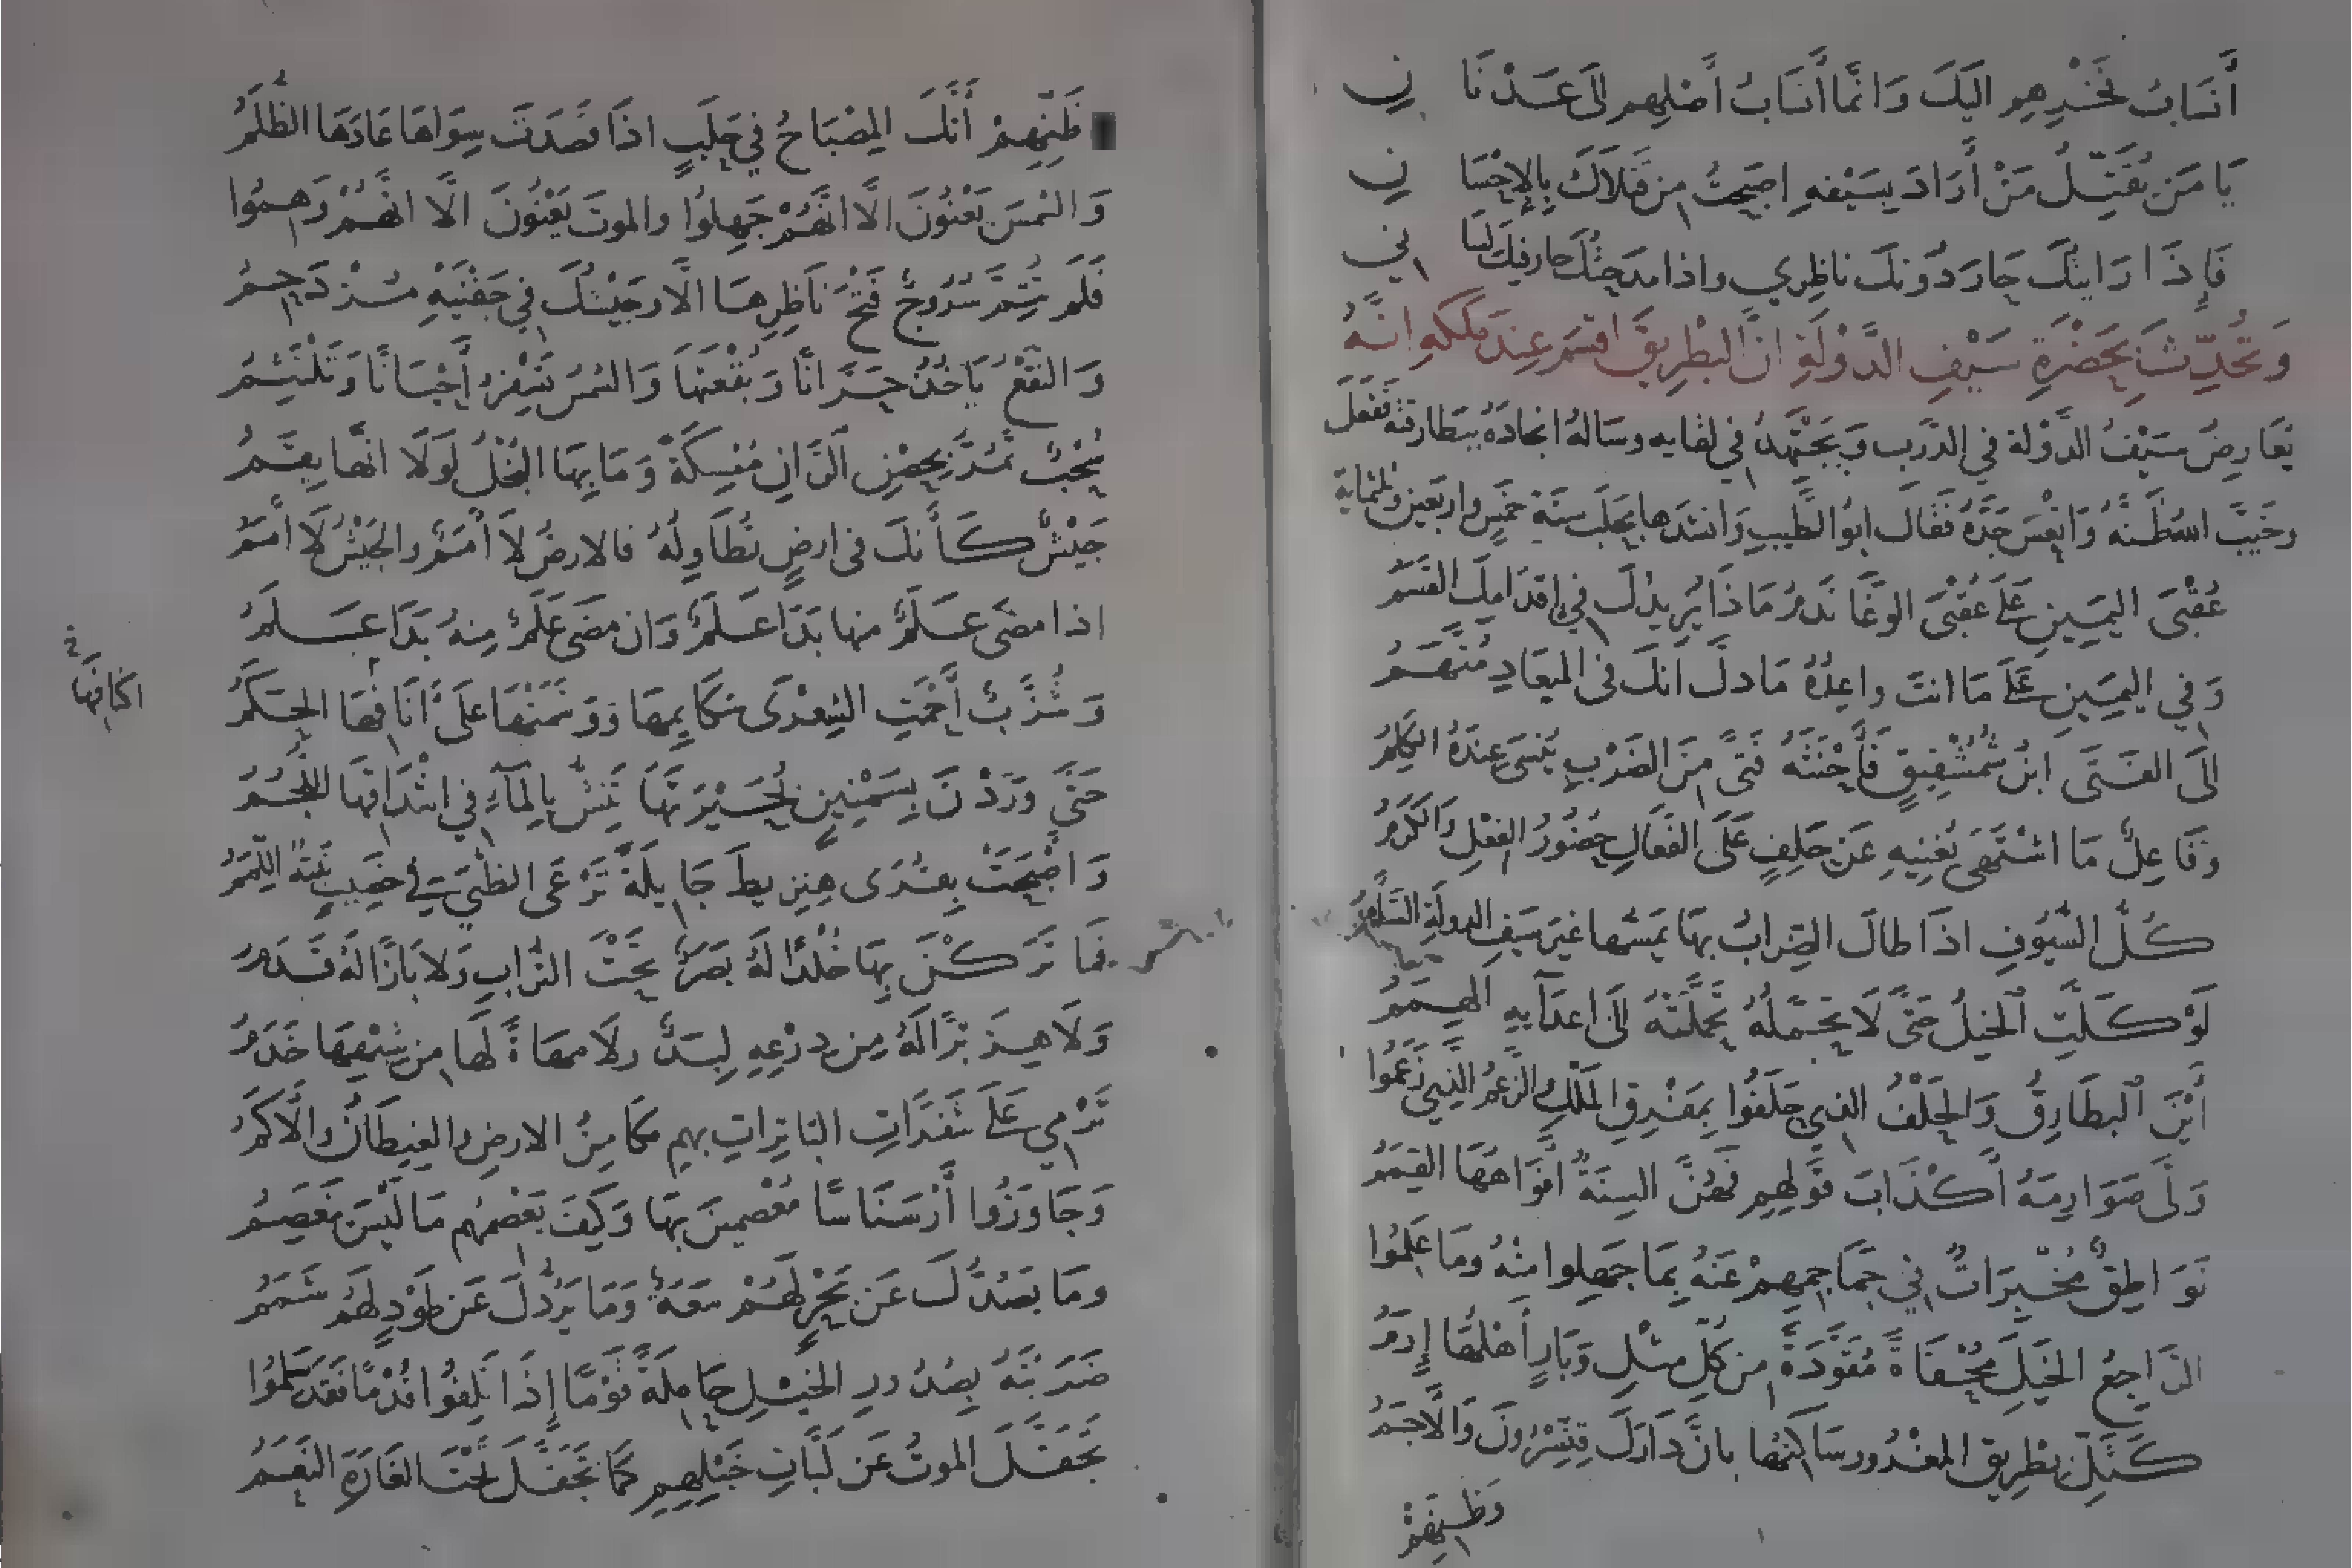 أَنسَابُ فَخْرِهِم اليَكَ وَانمَّا أَنسَابُ أَصْلِهِم الَى عَدْنَا نِ
يَا مَن يُقَتِّلُ مَنْ أَرَادَ بِسَيْفهِ اصبَحتُ مِن قَتلَاكَ بِالإحْسَا نِ
فَإِذَا رَايتكَ حَارَ دُونكَ ناظِري واذا مدَحتُكَ حارَ فيكَ لسَا ني
وَتُحُدِّثَ بِحَضْرَةِ سَيْفِ الدَّوْلَةِ انَّ البِطْرِيقَ اقسَم عِندَ مَلكهِ انَّهُ
يعَارِضُ سَيْفَ الدَّوْلة في الدَّرب وَيَجتَهِدُ في لقايه وسَالهُ انجادَهُ ببَطَارقته ففعَل
وخَيَّبَ اللهُ ظَنهُ وَاتعَس جَدَّهُ فقَال ابوُ الطيبِ وَانشدَها بحَلب سنَة خمَسٍ واربَعين وثلثماية
عُقْبَى اليمَينِ عَلَى عُقْبَى الوَغَا نَدمُ مَاذَا يُرِيدُكَ في إقدَامِكَ القسَمُ
وَفي اليمَينِ عَلَى مَا انتَ واعِدُهُ مَا دلَّ انكَ في الميعَادِ مُتَّهَمُ
الَى الفتَى ابنُ شُمُشْقِيقٍ فَأَحْنَثَهُ فتىً مِنَ الضَرْبِ يُنسَى عِندَهُ الكَلِمُ
وَفَاعِلٌ مَا اشتَهَى يُغنِيهِ عَن حَلِفٍ عَلَى الفَعَالِ حضُورُ الفِعْلِ وَالكَرَمُ
كلُّ السُّيُوفِ اذَا طالَ الضِرابُ بهَا يَمَسُّها غيَر سَيفِ الدولَةِ السَّأَمُ
لَوْ كلَّتِ الخيلُ حَتَّى لَا تحَمَّلُهُ تَحَمَّلَتْهُ الَى اعدَآيهِ الهِمَمُ
أَيْنَ البطَارِقُ وَالحَلْفُ الذي حَلفُوا بِمَفْرِقِ المَلْكِ والزَّعمُ الَّذي زعَمُوا
وَلَّى صَوَارِمَهُ أكْذَابَ قوْلهِم فَهُنَّ السِنَةٌ افوَاهُهَا القِمَمُ
نَوَاطِقٌ مُخْبِرَاتٌ في جمَاجِمِهِمْ عَنهُ بمَا جَهِلوا مِنْهُ ومَا عَلِمُوا
الرَّاجِعُ الخيَلَ مُحْفَاةً مُقَوَّدَةً مِن كلِّ مثلِ وَبَارٍ أَهْلُهَا إِرَمُ
كَتَلِّ بِطْرِيقٍ المغْرُورِ سَاكنهَا بانَّ دَارَكَ قِنّسْرُونَ وَالاجَمُ
وَظَنِّهِمْ
ظَنِّهِمْ أَنَّكَ المِصْبَاحُ في حَلَبٍ اذَا قَصَدتَ سِوَاهَا عَادَهَا الظُّلَمُ
وَالشمسَ يَعْنُونَ الَّا انَّهُمْ جَهِلوُا والموتَ يَعْنُونَ الَّا انَّهُمْ وَهِمُوا
فلَم تُتِمَّ سَرُوجٌ فَتْحَ ناظِرِهَا الَّا وجَيْشُكَ في جَفْنَيْهِ مُزْدَحِمُ
وَالنقْعُ يَاخُذُ حَرَّانًا وَبُقْعَتَهَا وَالشمسُ تَسْفِرُ أَحْيَانًا وَتَلْتَثِمُ
سُحْبٌ تمُرُّ بِحصْنِ الرَّانِ مُمْسِكَةٌ وَمَا بِهَا البُخْلُ لَوْلَا انَّهَا نِقَمُ
جَيْشٌ كَأَنكَ في ارضٍ تُطَاوِلُهُ فالارضُ لَا أَمَمٌ والجَيْشُ لَا أَمَمُ
اذا مضَى عَلَمٌ منها بَدَا عَلَمٌ وَان مضَى عَلَمٌ مِنهُ بَدَا عَلَمُ
وَشُزَّبٌ أَحْمَتِ الشِعْرَى شكَايِمهَا وَوَسَّمَتْهَا عَلَى أَنَافِهَا الحَكَمُ
اكافها
حَتَّى وَرَدْنَ بِسَمْنِينٍ بُحَيْرَتَهَا تَنِشُّ بالمَآءِ في اشْدَاقِهَا اللُّجُمُ
وَاصْبَحَتْ بِقُرَى هِنزِيطَ جَايلَةً تَرْعَى الظُّبَى في خصِيبٍ نَبتُهُ اللِّمَمُ
فمَا تَرَكْنَ بِهَا خُلْدًا لَهُ بَصَرٌ تَحْتَ التُّرابِ وَلَا بَازًا لَهُ قَدَمُ
وَلَا هِزَبْرًا لَهُ مِن دِرْعِهِ لِبَدٌ ولَا مهَاةً لَها مِن شِبْهِهَا حَشَمُ
تَرْمي عَلَى شَفَرَاتِ البَاتِراتِ بهِم مكَامِنُ الارضِ والغِيطَانُ والَاكَمُ
وَجَاوَزُوا أَرْسَنَاسًا مُعْصِمينَ بِهَا وَكَيفَ يَعْصِمُهُم مَا لَيْسَ يَنعَصِمُ
ومَا يَصُدُّكَ عَن بَحْرٍ لَهُمْ سَعَةٌ وَمَا يَرُدُّكَ عَن طَوْدٍ لَهُم شَمَمُ
ضَرَبْتَهُ بِصُدُورِ الخيْلِ حَامِلَةً قَوْمًا إِذَا تَلِفُوا قُدْمًا فَقَد سَلِمُوا
تَجَفَّلَ الموتُ عَن لَبَّاتِ خَيْلِهِمِ كَمَا تَجَفَّلَ تَحْتَ الغَارَةِ النَعَمُ